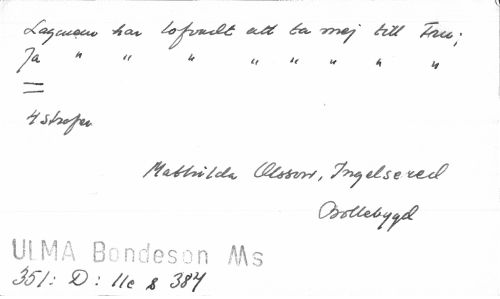 Lagman har lofvadt att ta mej till Fru;
Ja " " " " " " " "
=
4 strofer
Mathilda Olsson, Ingelsered
Bollebygd
ULMA Bondeson Ms
351: D: 11c s 384